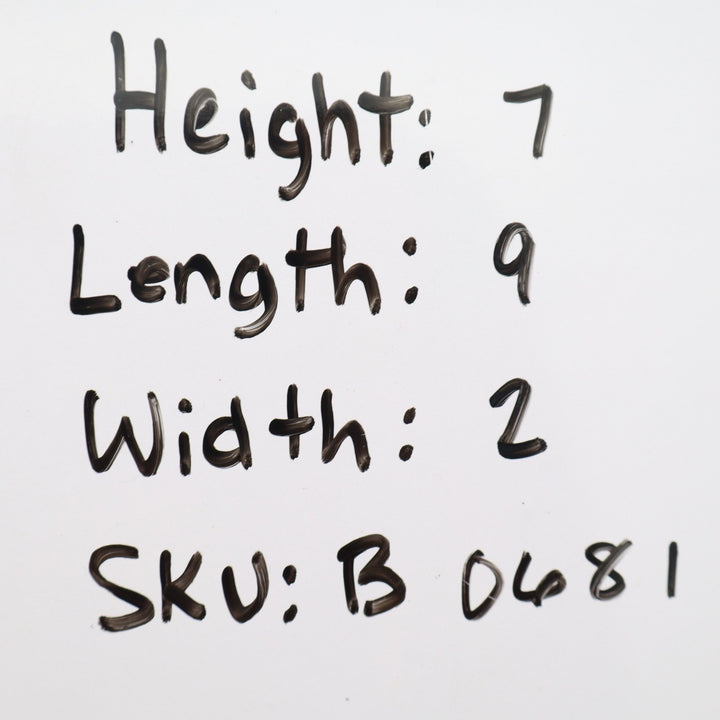 Height: 7
Length: 9
Width: 2
SKU: B 0681